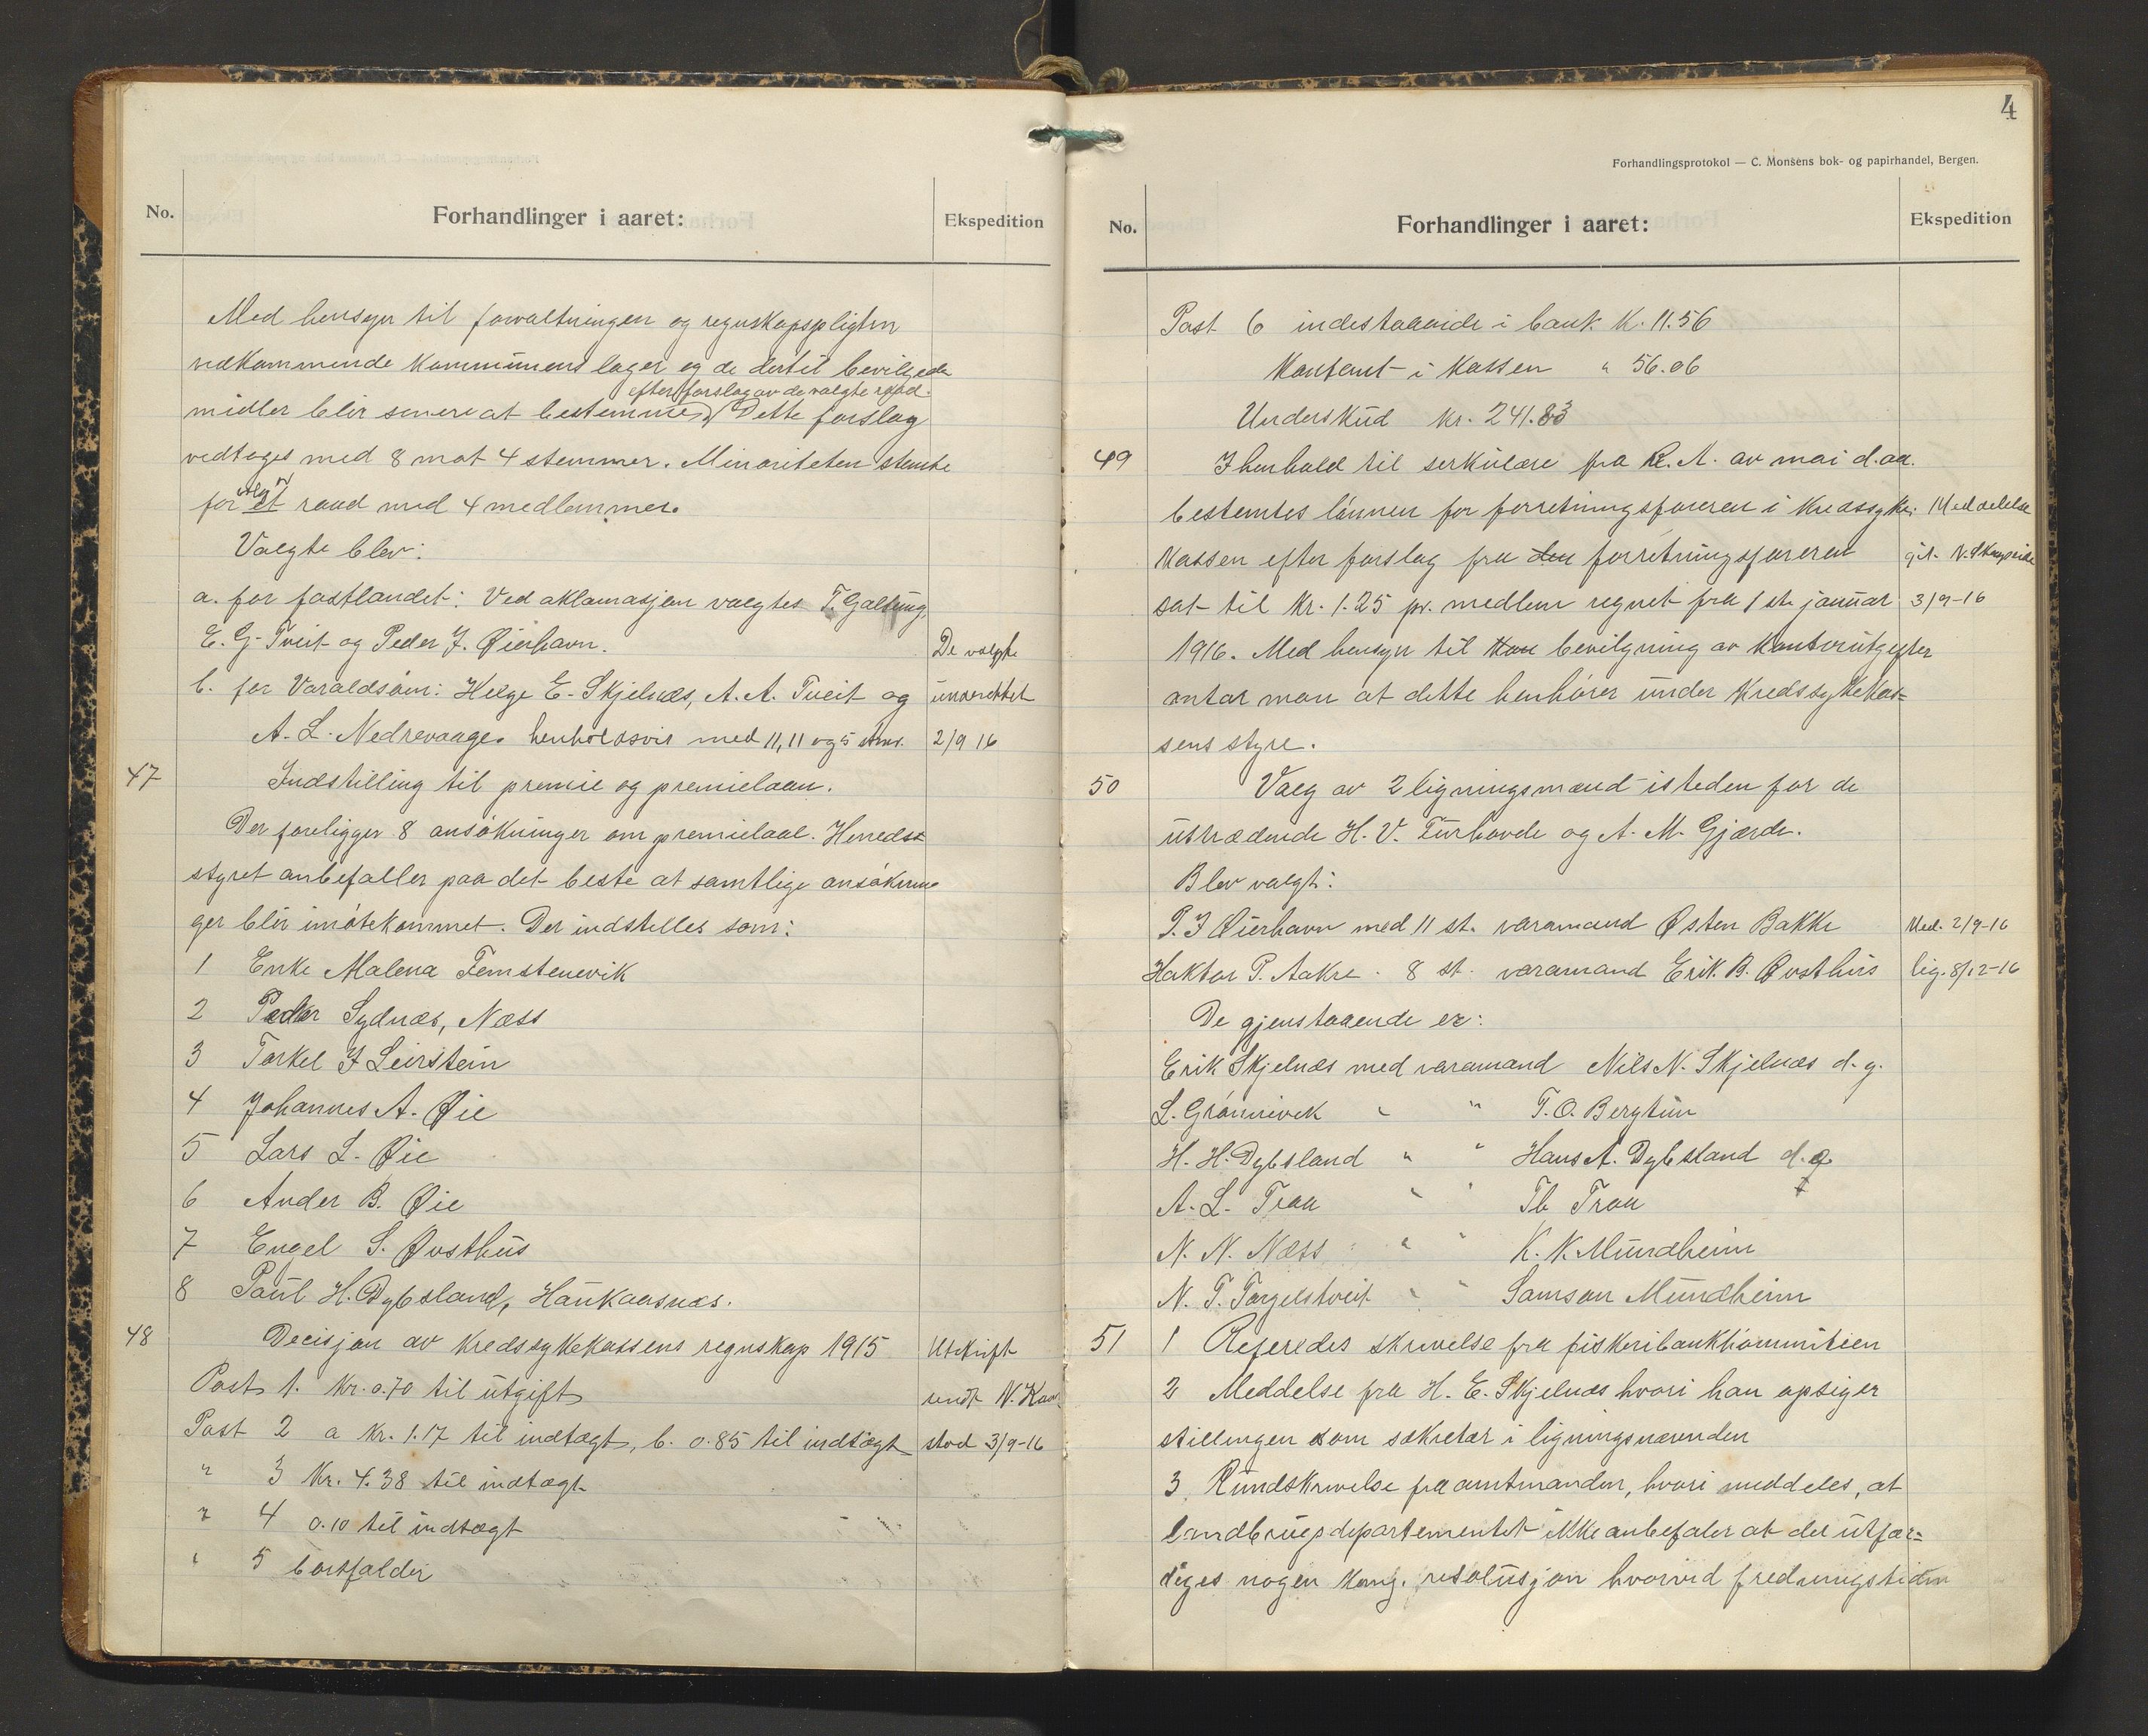 No.
Forhandlinger i aaret:
Ekspedition
Med hensyn til forvaltningen og regnskapspligten
vedkommende kommunens lager og de dertil bevilgede
efter forslag av de valgte raad.
midler blir senere at bestemme. Dette forslag
vedtages med 8 mot 4 stemmer. Minoriteten stemte
valg av
for et raad med 4 medlemmer.
Valgte blev:
a. for fastlandet: Ved aklamasjon valgtes T. Galtung,
E. G. Tveit og Peder J. Øierhavn.
De valgte
b. for Varaldsöen: Helge E. Skjelnæs, A. A. Tveit og
underrettet
A. L. Nedrevaage. henholdsvis med 11, 11 og 5 stmr.
2/9 16
47
Indstilling til premie og premielaan.
Der foreligger 8 ansökninger om premielaal. Herreds=
styret anbefaller paa det beste at samtlige ansöknin=
ger blir imötekommet. Der indstilles som:
1 Enke Malena Femstenevik
2 Peder Sydnæs, Næss
3 Torkel J Leirstein
4 Johannes A. Øie
5 Lars L. Øie
6 Ander B. Øie
7 Engel S. Øvsthus
8 Paul H. Dybsland, Haukaasnæs.
48
Decisjon av kredssykekassens regnskap 1915
Utskrift
Post 1. Kr. 0.70 til utgift
sendt N. Kav
Post 2 a Kr. 1.17 til indtægt, b. 0.85 til indtægt
stad 3/9-16
" 3 Kr. 4.38 til indtægt
" 4 0.10 til indtægt
" 5 bortfalder
4
Forhandlingsprotokol — C. Monsens bok- og papirhandel, Bergen.
No.
Forhandlinger i aaret:
Ekspedition
Post 6 indestaaende i bank K. 11.56
Kontant i Kassen " 56.06
Underskud kr. 241.83
49
I henhold til serkulære fra R. A. av mai d. aa.
bestemtes lönnen for forretningsföreren i Kredssyke=
Meddelelse
kassen efter forslag fra den forretningsföreren
git. N.
sat til Kr. 1.25 pr. medlem regnet fra 1ste januar
3/9-16
1916. Med hensyn til Kon bevilgning av Kontorutgifter
antar man at dette henhörer under Kredssykekas=
sens styre.
50
Valg av 2 ligningsmænd isteden for de
utrædende H. V. Turhovde og A. M. Gjærde.
Blev valgt:
P. J Øierhavn med 11 st. varamand Østen Bakke
Med. 2/9-16
Haktor P. Aakre. 8 st. varamand Erik B. Øvsthus
lig. 8/12-16
De gjenstaaende er:
Erik Skjelnæs med varamand Nils N. Skjelnæs d. y.
L. Grönnevik " " T. O. Bergtun
H. H. Dybsland " " Hans A. Dybsland d. y
A. L. Traa " " Tb Traa
N. N. Næss " " K. N. Mundheim
N. T. Torgelstveit " " Samson Mundheim
51
1 Referedes skrivelse fra fiskeribankkommiteen
2 Meddelse fra H. E. Skjelnæs hvori han opsiger
stillingen som sekretær i ligningsnævnden
3 Rundskrivelse fra amtmanden, hvori meddeles, at
landbrugsdepartementet ikke anbefaler at der utfær=
diges nogen kong. resolusjon hvorved fredningstiden